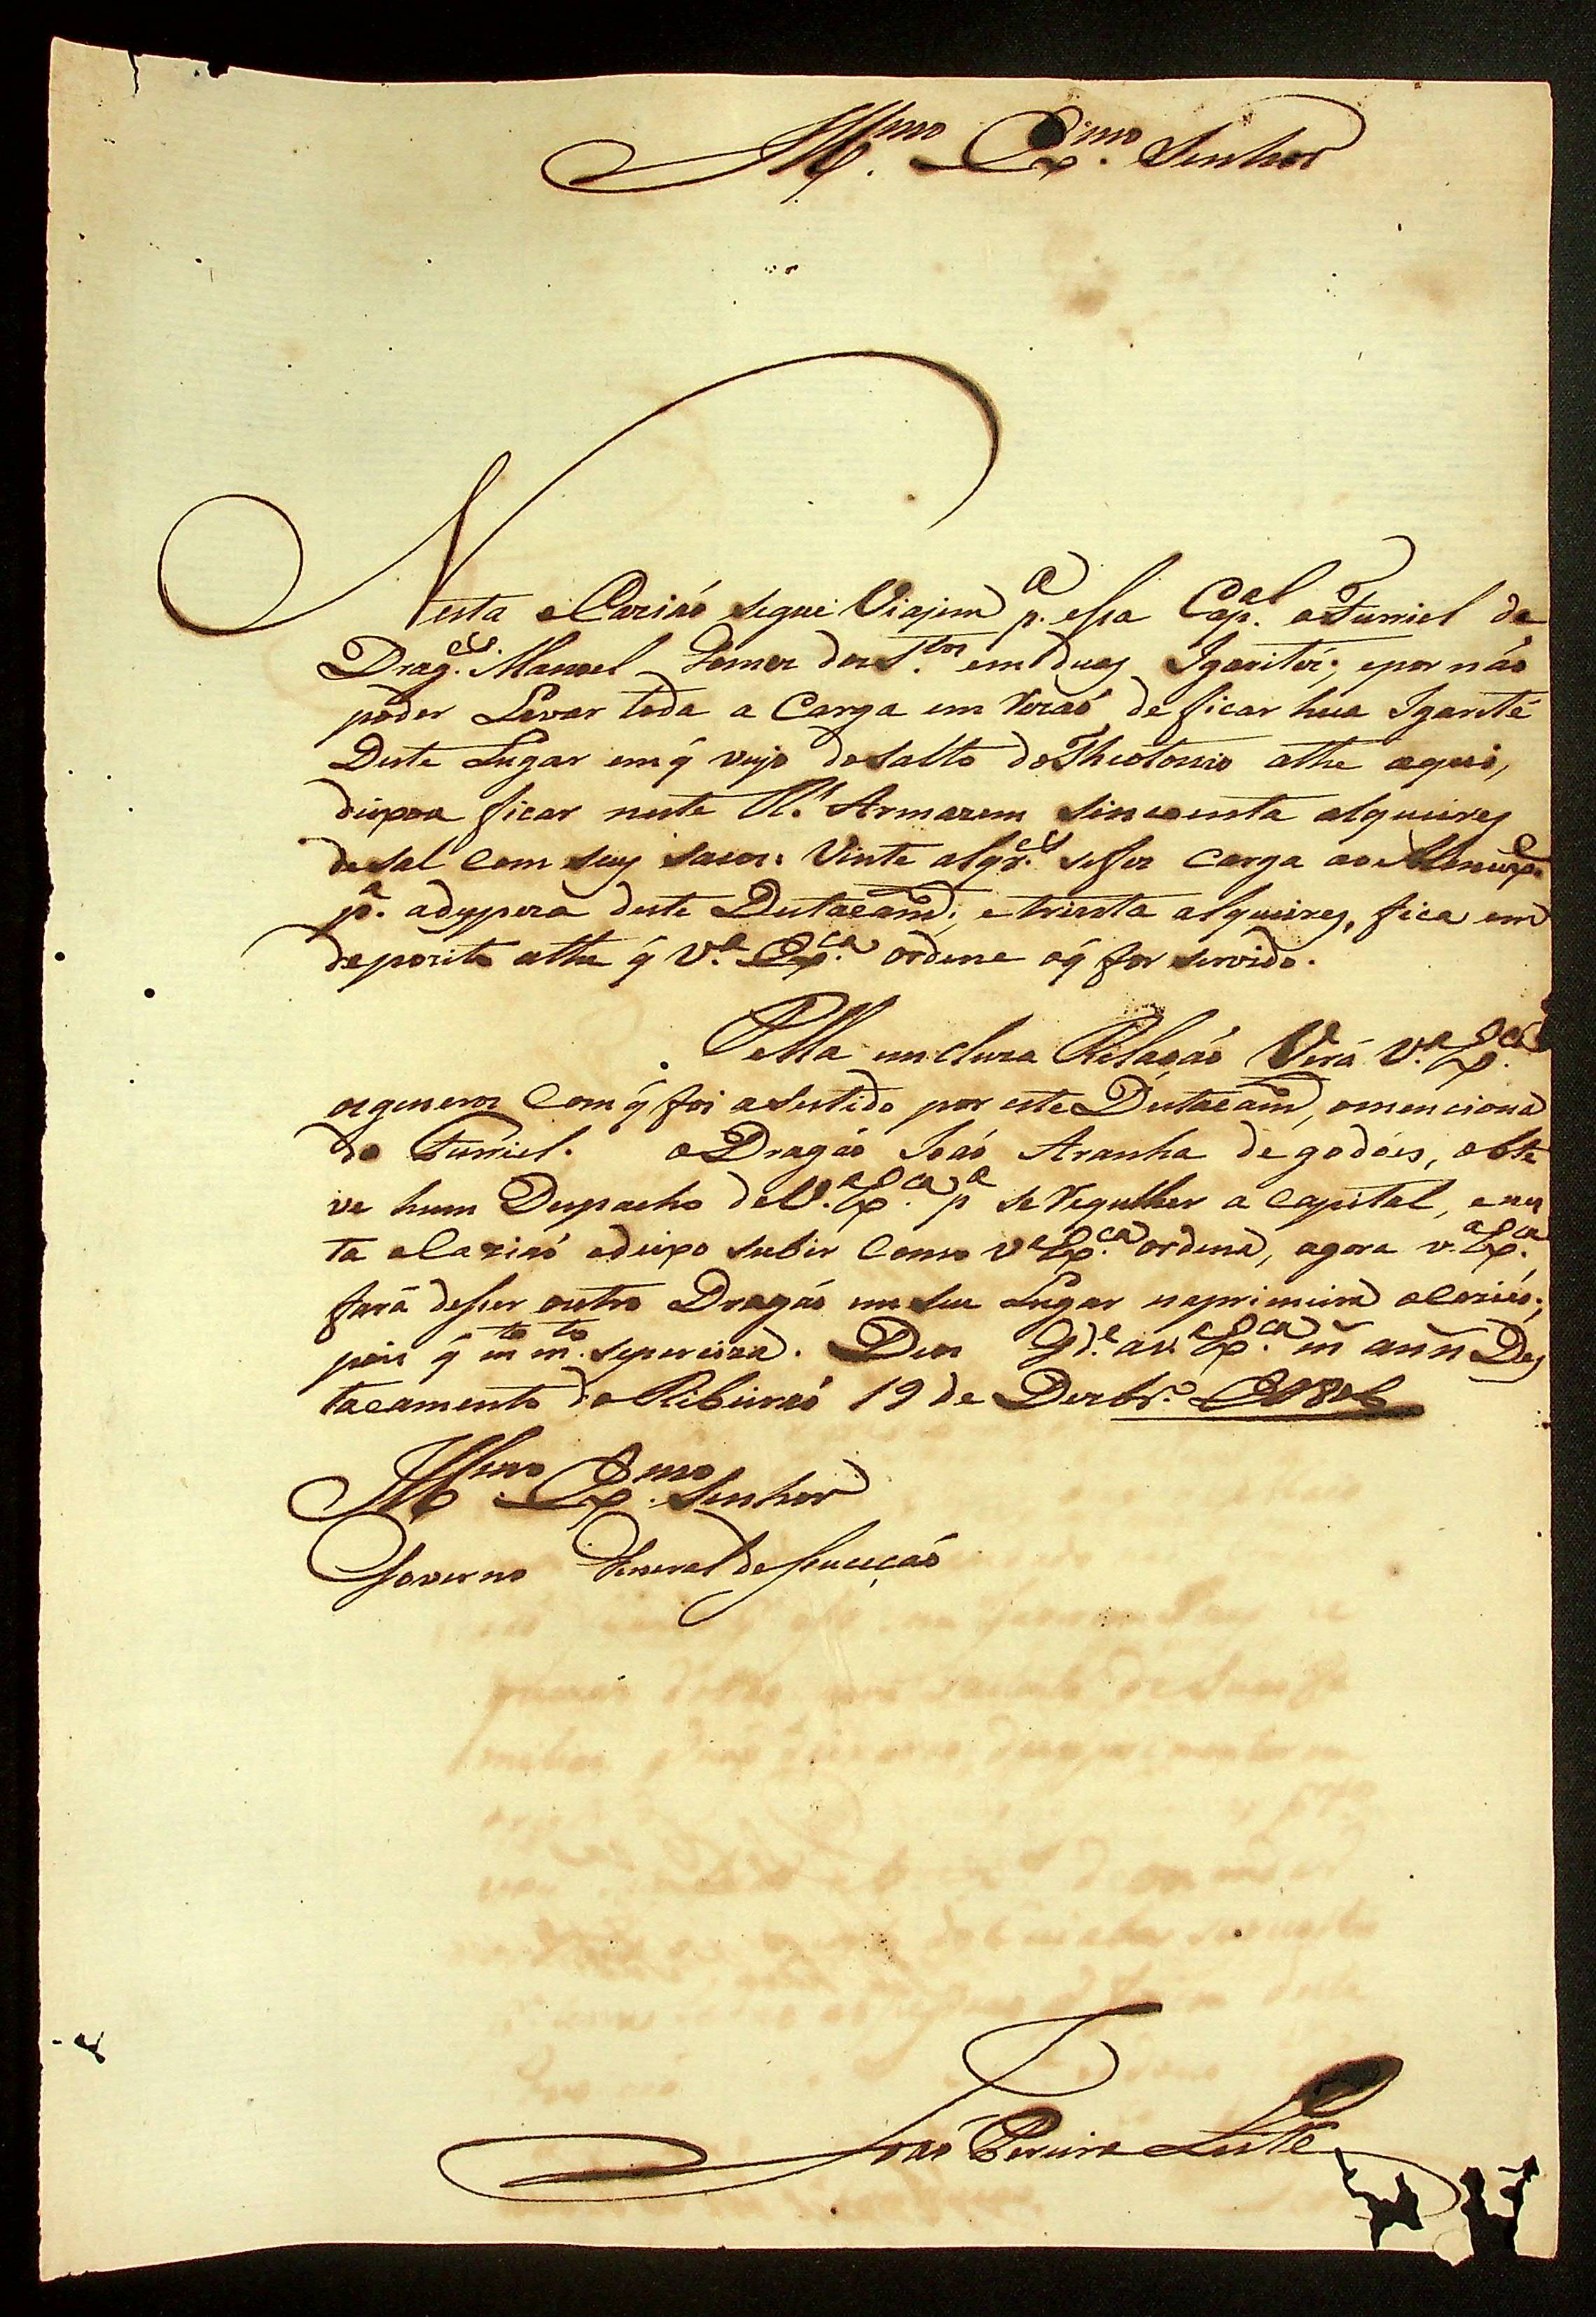 Ill.mo Ex.mo Senhor
Nesta oCaziaõ segue Viajem p.a essa Cap.al o Furriel de
Drag.es Manoel Gomes dos S.tos em duas Igaritéz; epor não
poder Levar toda a Carga em rezaõ de ficar hua Igarité
Deste Lugar em q̃ veyo do Salto do Theotonio athe aqui,
deixou ficar neste R.l Armazem sincoenta alqueires
de Sal com seus sacos: Vinte alqr.es se fez carga ao Almox.e
p.a adespeza deste Destacam.to; e trinta alqueires, fica em
depozito athe q̃ V.a Ex.ca ordene oq̃ for servido.
Pella incluza Relação Verá V.a Ex.ca
osgeneros Com q̃ foi asestido por este Destacam.to, omenciona
do Furriel. o Dragaõ Joaõ Aranha de godois, obte
ve hum Despacho de V.a Ex.ca p.a se Regulher a Capital, e nes
ta oCaziaõ odeixo subir Como V.a Ex.ca ordena, agora V.a Ex.ca
fará desser outro Dragaõ em seu Lugar naprimeira oCaziaõ;
pois q̃ m.to m.to seperciza. Deos G.de a V.a Ex.ca m.s ann.s Des
tacamento do Ribeiraõ 19 de Dezbr.o de 1806
Ill.mo Ex.mo Senhor
Governo General de Suceçaõ
Joaõ Pereira Leite